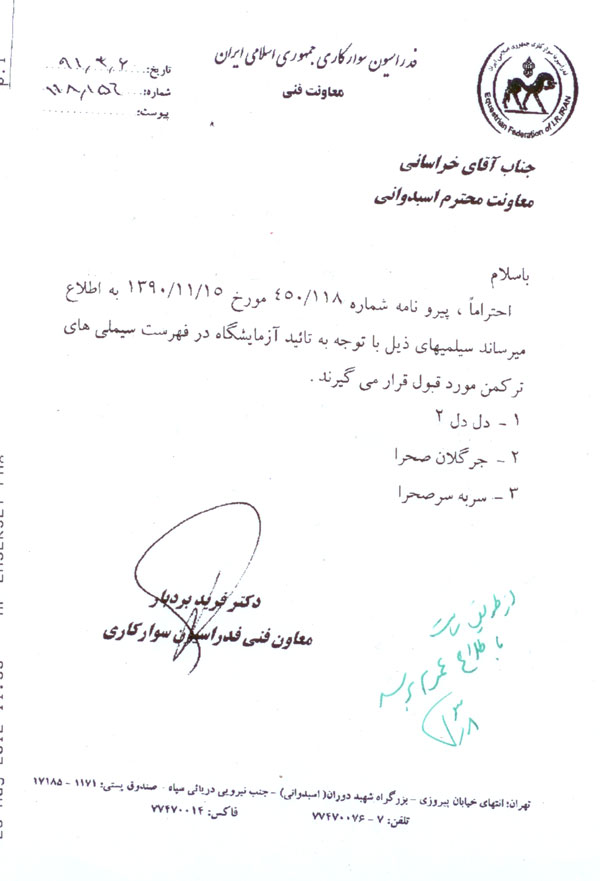 فدراسیون سوارکاری جمهوری اسلامی ایران
معاونت فنی
تاریخ: ۹۱,۳,۶
شماره: ۱۱۸,۱۵۶
پیوست:
فدراسیون سوارکاری جمهوری اسلامی ایران
Equestrian Federation of I.R.IRAN
جناب آقای خراسانی
معاونت محترم اسبدوانی
باسلام
احتراماً ، پیرو نامه شماره ۴۵۰/۱۱۸ مورخ ۱۳۹۰/۱۱/۱۵ به اطلاع
میرساند سیلمیهای ذیل با توجه به تائید آزمایشگاه در فهرست سیملی های
ترکمن مورد قبول قرار می گیرند .
۱ - دل دل ۲
۲ - جرگلان صحرا
۳ - سربه سرصحرا
دکتر فرید بردبار
معاون فنی فدراسیون سوارکاری
از طریق سایت
باطلاع عموم برسد
۳
تهران: انتهای خیابان پیروزی - بزرگراه شهید دوران( اسبدوانی) - جنب نیرویی دریائی سپاه - صندوق پستی: ۱۱۷۱ - ۱۷۱۸۵
تلفن: ۷ - ۷۷۴۷۰۰۷۶ فاکس: ۷۷۴۷۰۰۱۴
p.1